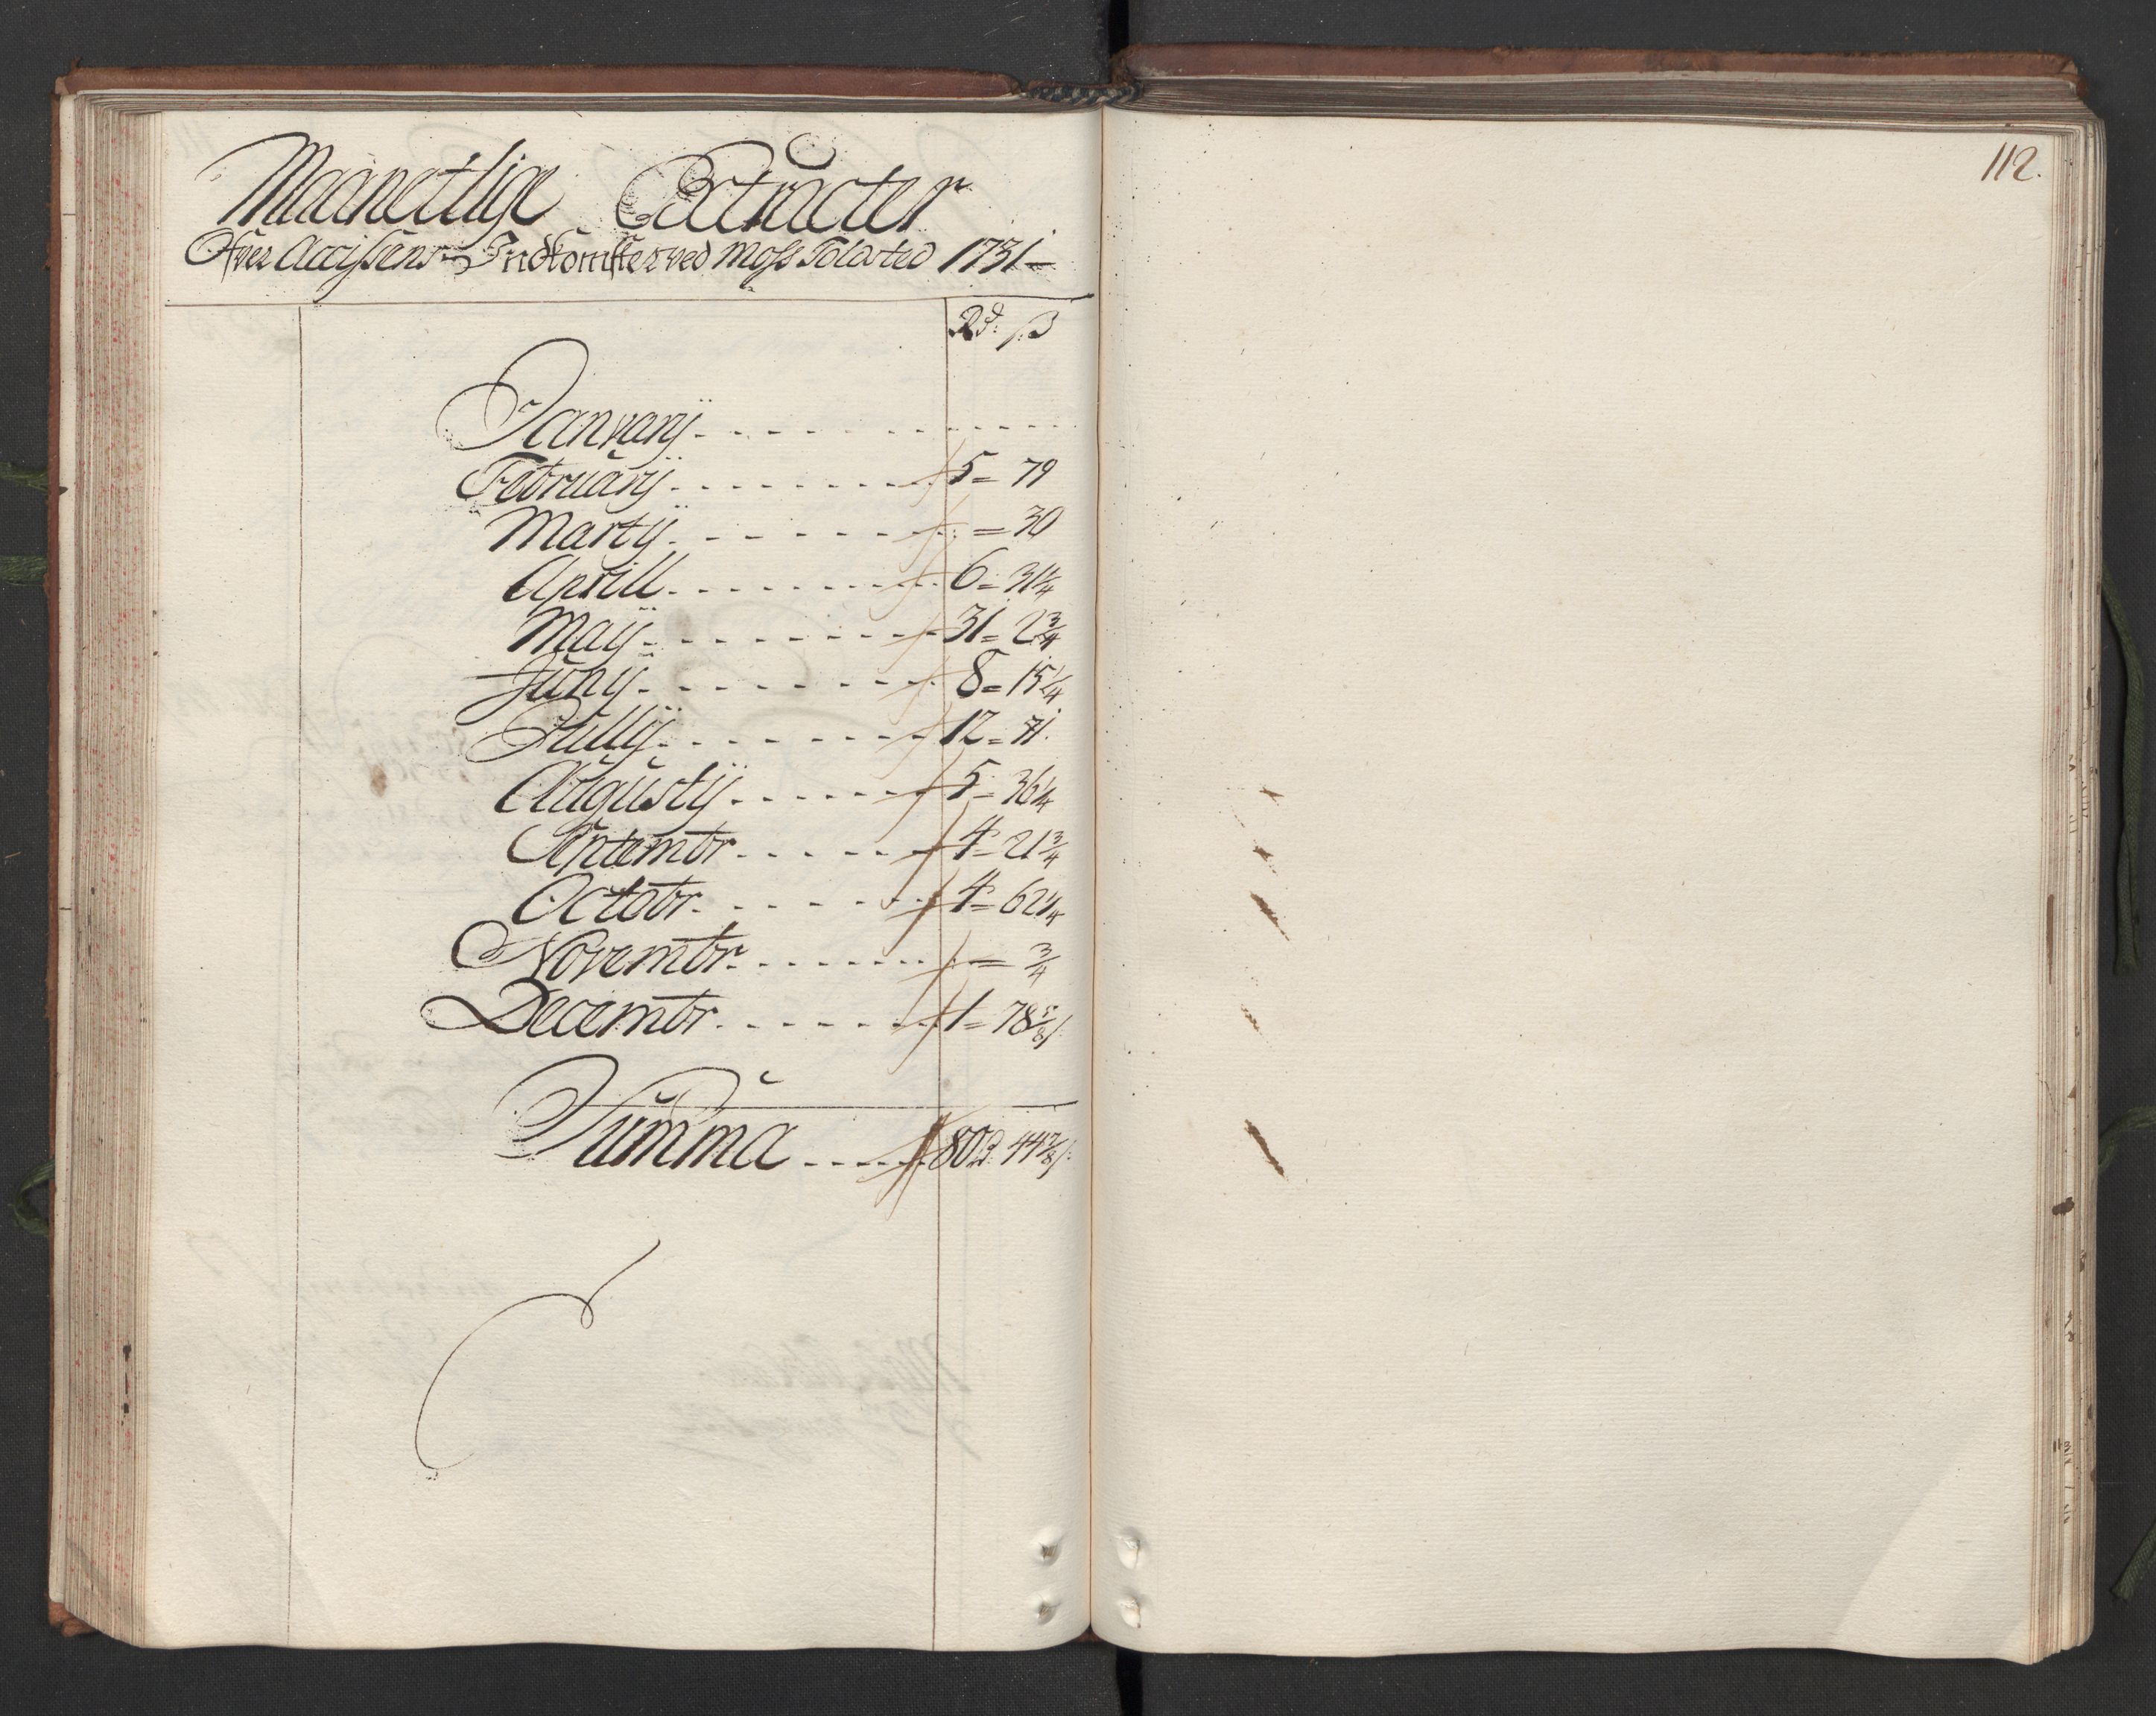 Maanetlige Extracter
Ofver Accissens Indkomster ved Moss Tolдsted 1731
Rd: ß
January
February 5 = 79
Marty : = 30
Aprill 6 = 31 1/4
May 31 = 2 3/4
Juny 8 = 15 1/4
Jully 12 = 71
Augusty 5 = 36 1/4
Septembr 4 = 21 3/4
Octobr 4 = 62 1/4
Novembr = 3/4
Decembr 1 = 78 5/8
Summa 80 d 44 7/8
112.